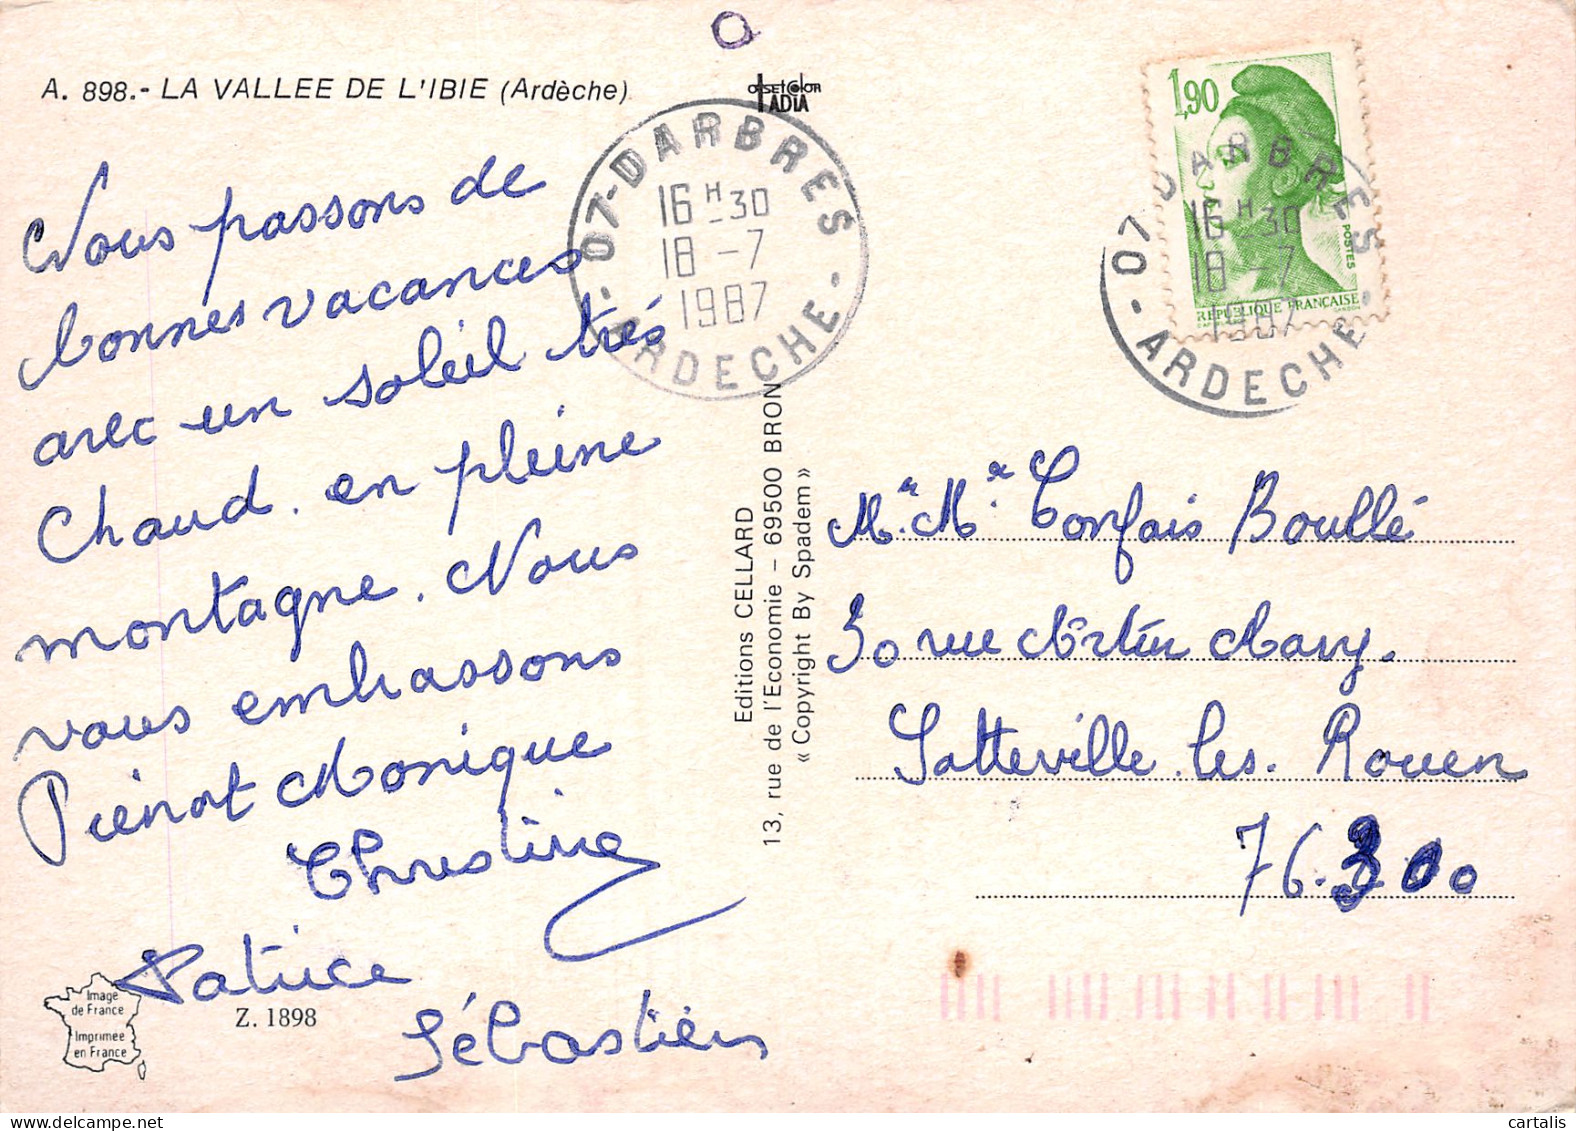 A. 898.- LA VALLEE DE L'IBIE (Ardèche)
offset color
IADIA
Nous passons de
bonnes vacances
avec un soleil très
chaud. en pleine
montagne. Nous
vous embrassons
Pierrot Monique
Christine
Patrice
Sébastien
Image
de France
Imprimée
en France
Z. 1898
07-DARBRES
16 H -30
18 -7
1987
- ARDECHE -
Editions CELLARD
13, rue de l'Economie - 69500 BRON
« Copyright By Spadem »
1,90
POSTES
REPUBLIQUE FRANÇAISE
07 DARBRES
16 H -30
18 -7
1987
- ARDECHE -
Mr. Me. Confais Boullé
30 rue
Sotteville. les. Rouen
76.300
cartalis